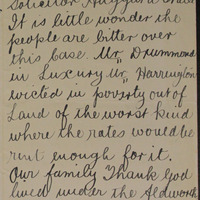 Solicitor Huggard
It is little wonder the
people are bitter over
this Case. Mr, Drummond
in Luxury Mr, Harrington
evicted in poverty out of
Land of the worst kind
where the rates would be
rent enough for it.
Our family Thank God
lived under the Aldworth